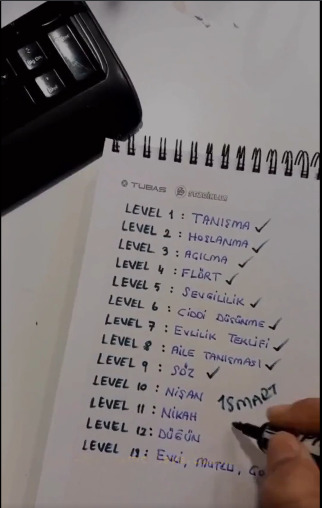 TUBAS
LEVEL 1 : TANIŞMA ✓
LEVEL 2 : HOŞLANMA ✓
LEVEL 3 : AÇILMA ✓
LEVEL 4 : FLÖRT ✓
LEVEL 5 : SEVGİLİLİK ✓
LEVEL 6 : CİDDİ DÜŞÜNME ✓
LEVEL 7 : EVLİLİK TEKLİFİ ✓
LEVEL 8 : AİLE TANIŞMASI ✓
LEVEL 9 : SÖZ ✓
LEVEL 10 : NİŞAN 1SMART
LEVEL 11 : NİKAH
LEVEL 12 : DÜĞÜN
LEVEL 13 : EVLİ, MUTLU,